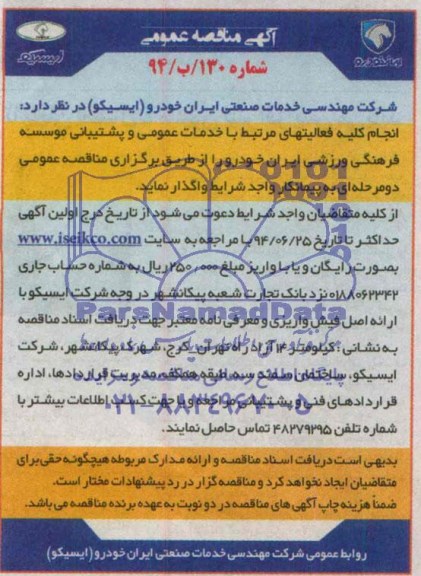 آگهی مناقصه عمومی
ایران خودرو
ایسیکو
شماره ۱۳۰/ب/۹۴
شرکت مهندسی خدمات صنعتی ایران خودرو (ایسیکو) در نظر دارد:
انجام کلیه فعالیتهای مرتبط با خدمات عمومی و پشتیبانی موسسه
فرهنگی ورزشی ایران خودرو را از طریق برگزاری مناقصه عمومی
دو مرحله‌ای به پیمانکار واجد شرایط واگذار نماید.
از کلیه متقاضیان واجد شرایط دعوت می شود از تاریخ درج اولین آگهی
حداکثر تا تاریخ ۹۴/۰۶/۲۵ با مراجعه به سایت www.iseikco.com
بصورت رایگان و یا با واریز مبلغ ۲۵۰/۰۰۰ ریال به شماره حساب جاری
۰۱۸۸۰۶۲۳۴۲ نزد بانک تجارت شعبه پیکانشهر در وجه شرکت ایسیکو با
ارائه اصل فیش واریزی و معرفی نامه معتبر جهت دریافت اسناد مناقصه
به نشانی: کیلومتر ۱۴ آزاد راه تهران - کرج، شهرک پیکانشهر، شرکت
ایسیکو، ساختمان سمند سه، طبقه همکف، مدیریت قراردادها، اداره
قراردادهای فنی و پشتیبانی مراجعه و یا جهت کسب اطلاعات بیشتر با
شماره تلفن ۴۸۲۷۹۲۹۵ تماس حاصل نمایند.
بدیهی است دریافت اسناد مناقصه و ارائه مدارک مربوطه هیچگونه حقی برای
متقاضیان ایجاد نخواهد کرد و مناقصه گزار در رد پیشنهادات مختار است.
ضمناً هزینه چاپ آگهی های مناقصه در دو نوبت به عهده برنده مناقصه می باشد.
روابط عمومی شرکت مهندسی خدمات صنعتی ایران خودرو (ایسیکو)
ParsNamadData
۰۲۱-۸۸۳۴۹۶۷۰-۵